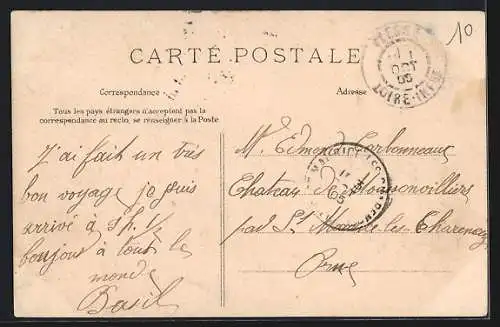 10
CARTE POSTALE
Correspondance
Adresse
Tous les pays étrangers n'acceptent pas la
correspondance au recto, se renseigner à la Poste
OCT
05
LOIRE-INFRE
J'ai fait un très
bon voyage je suis
arrivé à 5h. 1/2
bonjour à tout le
monde
Basil
M. Edmond Carbonneaux
Chateau de
par St Maurice les Charencey
Orne